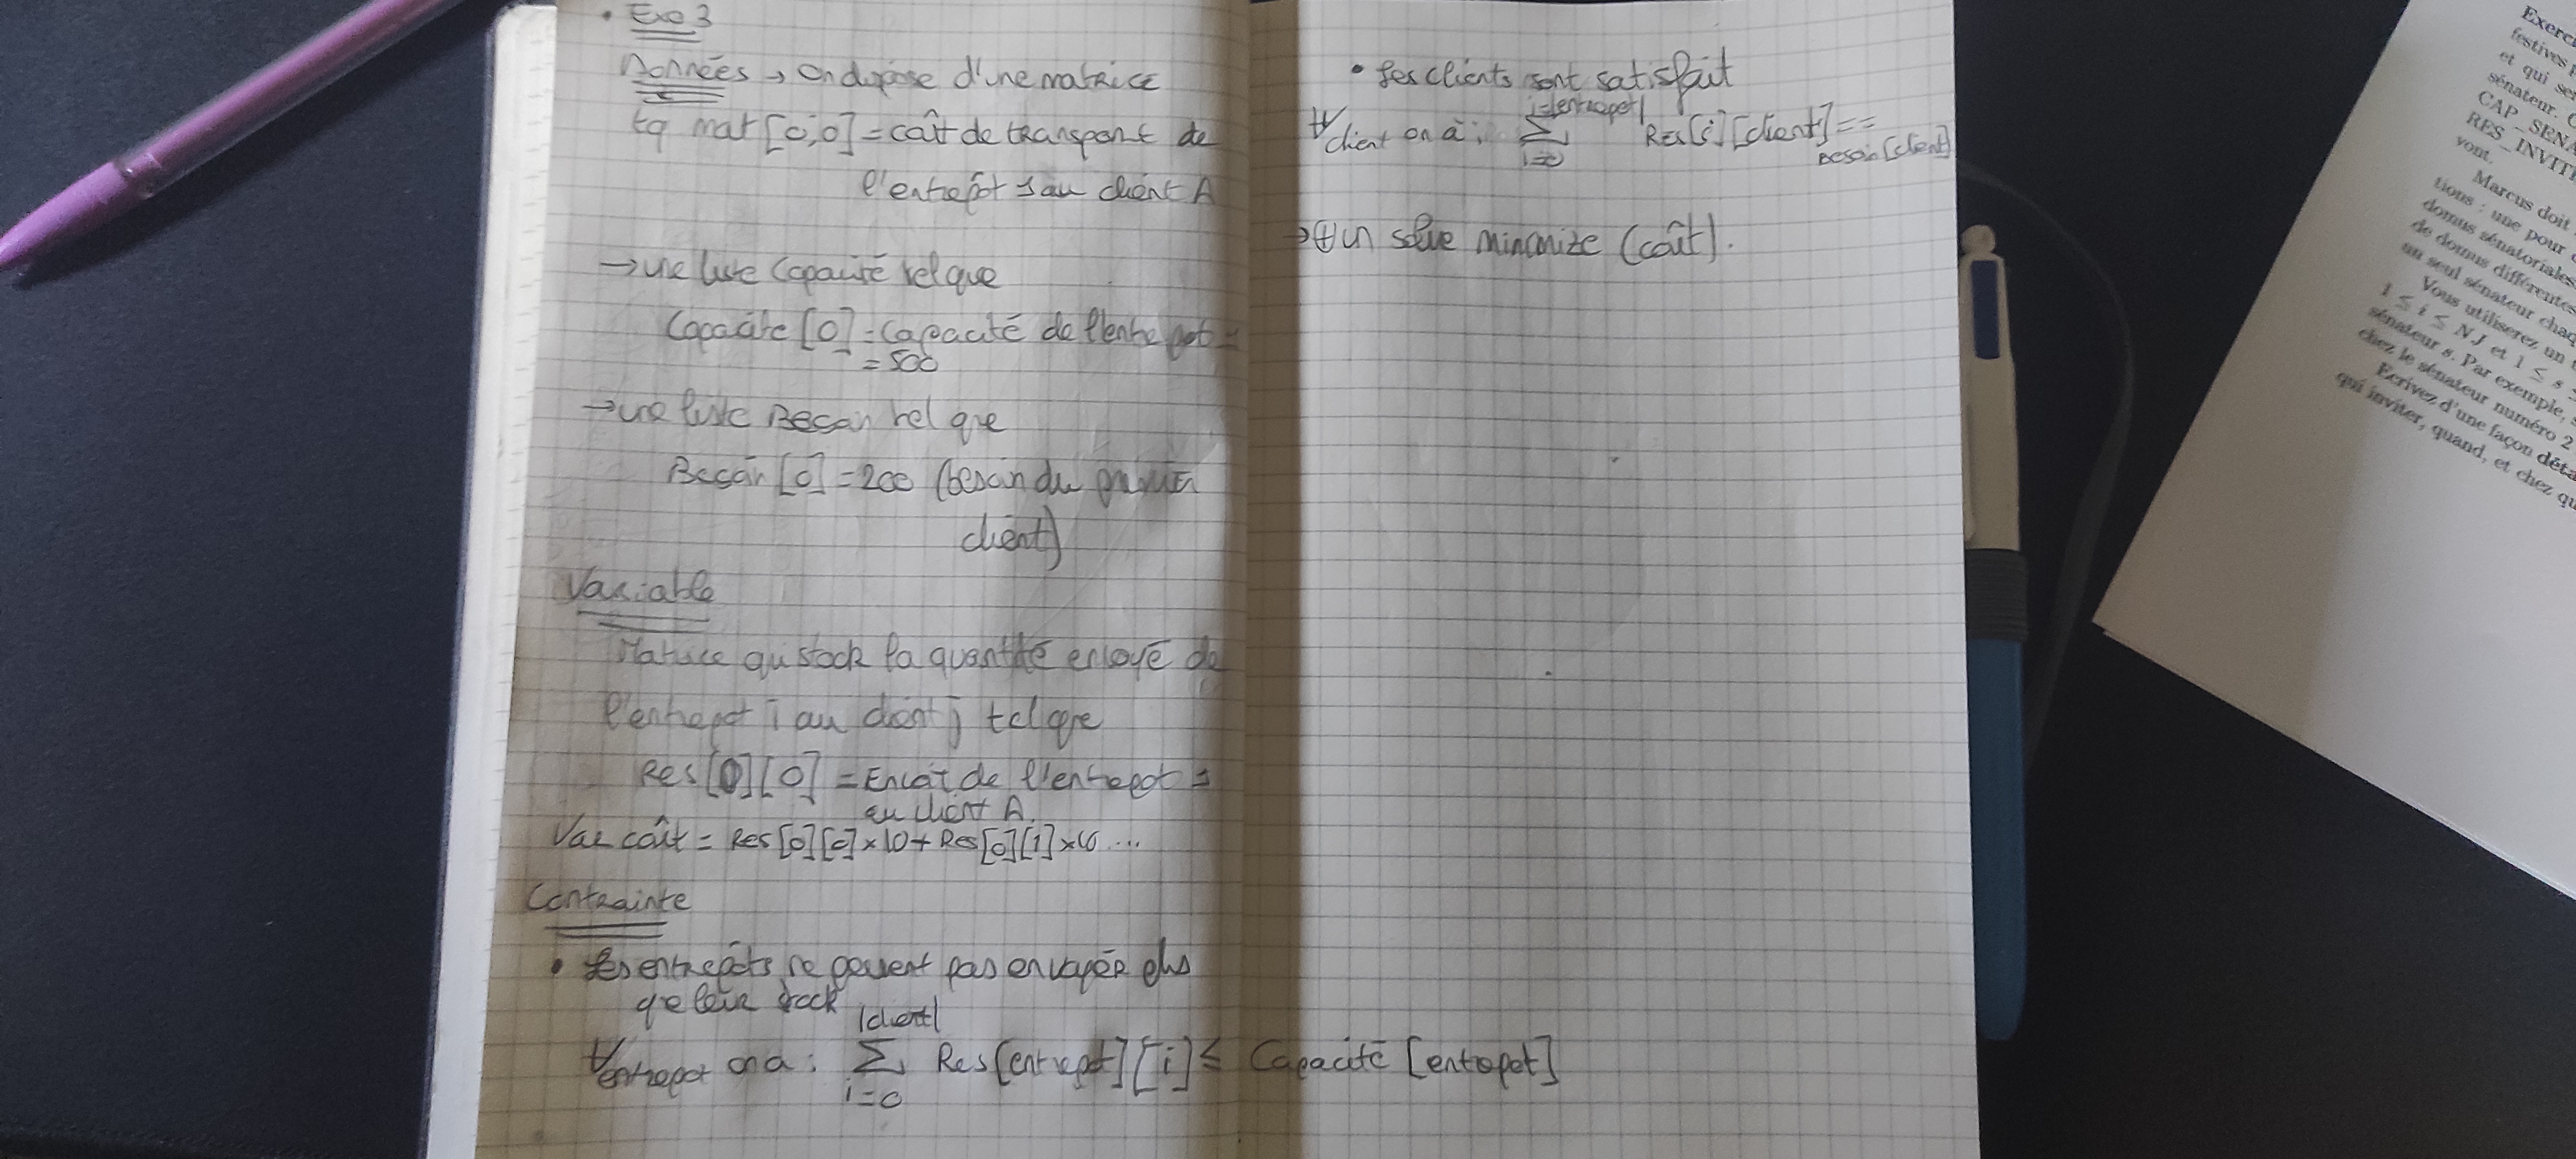 • Exo 3
Données → On dispose d'une matrice
tq mat [0,0] = coût de transport de
l'entrepôt 1 au client A
→ une liste Capacité tel que
Capacite [0] = Capacité de l'entrepot 1
= 500
→ une liste Besoin tel que
Besoin [0] = 200 (besoin du premier
client)
Variable
Matrice qui stock la quantité envoyé de
l'entrepot i au client j tel que
Res [0][0] = Envoi de l'entrepot 1
au client A.
Var coût = Res [0][0] × 10 + Res [0][1] ×
Contrainte
• Les entrepôts ne peuvent pas envoyér plus
que leur stock
∀ entrepot on a : |client| ∑ i=0 Res [entrepot][i] ≤ Capacité [entrepot]
• Les clients sont satisfait
∀ client on a : i=|entrepot| ∑ i=0 Res[i][client] == Besoin [client]
→ ⊕ un solve minimize (coût).
Exerci
festives
et qui se
sénateur. C
CAP_SENA
RES_INVIT
vont.
Marcus doit
tions : une pour
domus sénatoriales
de domus différentes
un seul sénateur chaq
Vous utiliserez un
1 ≤ i ≤ NJ et 1 ≤ s ≤
sénateur s. Par exemple,
chez le sénateur numéro 2
Ecrivez d'une façon déta
qui inviter, quand, et chez qu